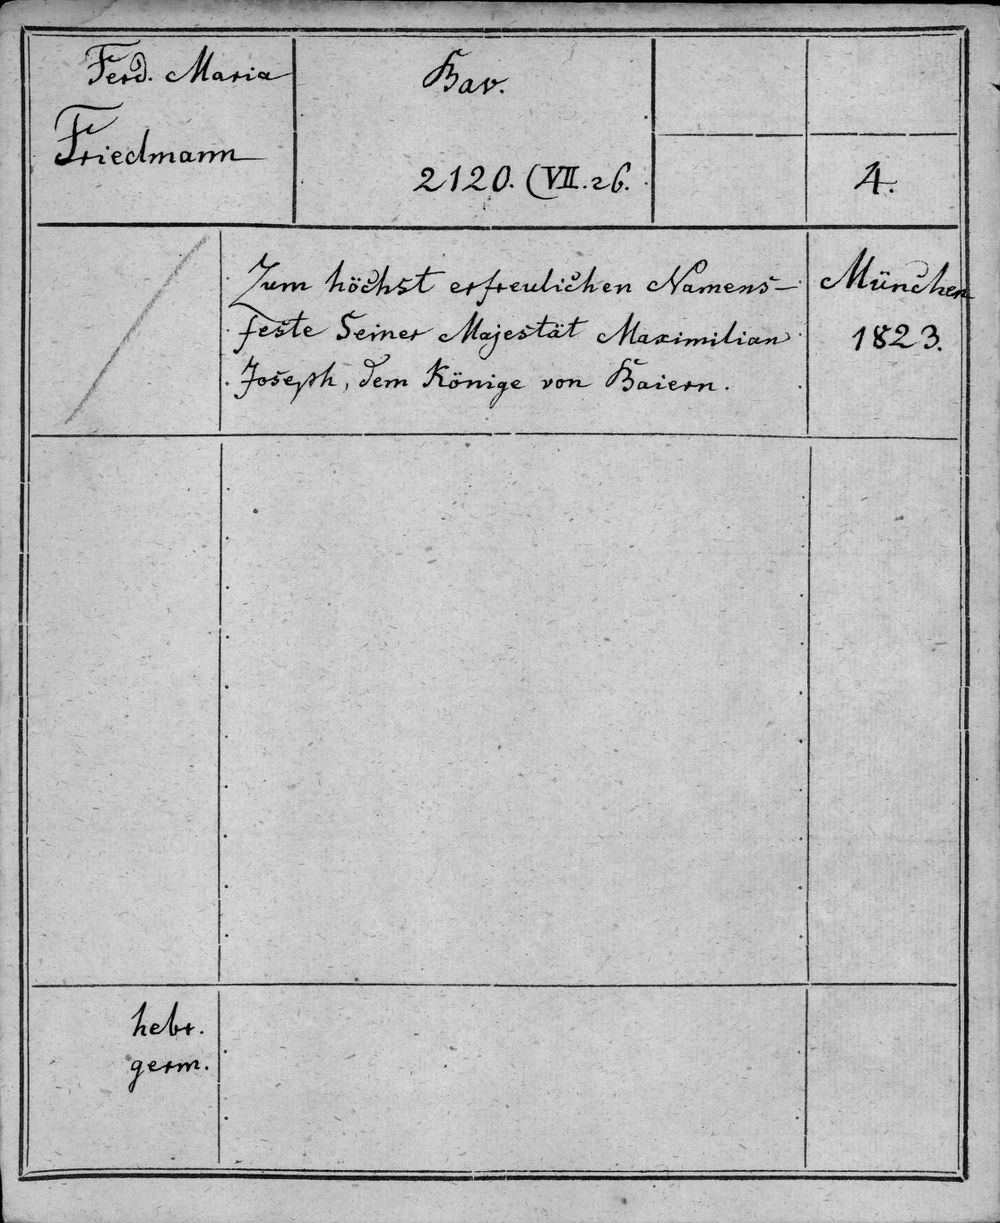 Ferd. Maria
Friedmann
Bav.
2120. (VII. 26.
4.
Zum höchst erfreulichen Namens-
feste Seiner Majestät Maximilian
Joseph, dem Könige von Baiern.
München
1823.
hebr.
germ.